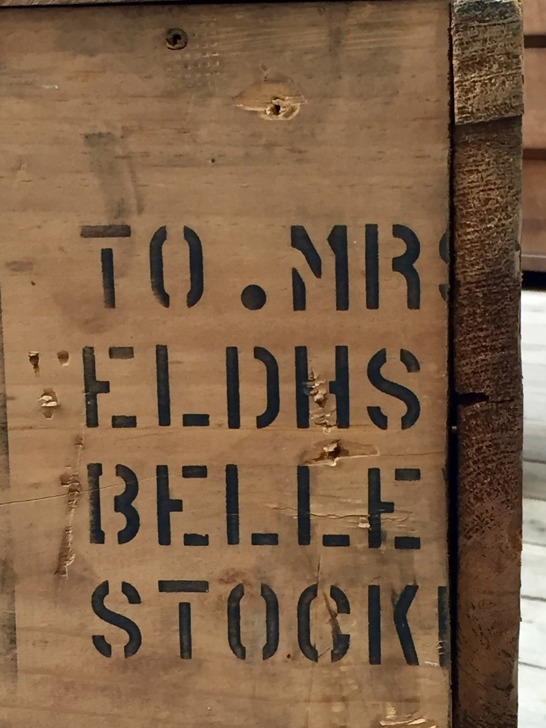 TO.MRS
ELDHS
BELLE
STOCK